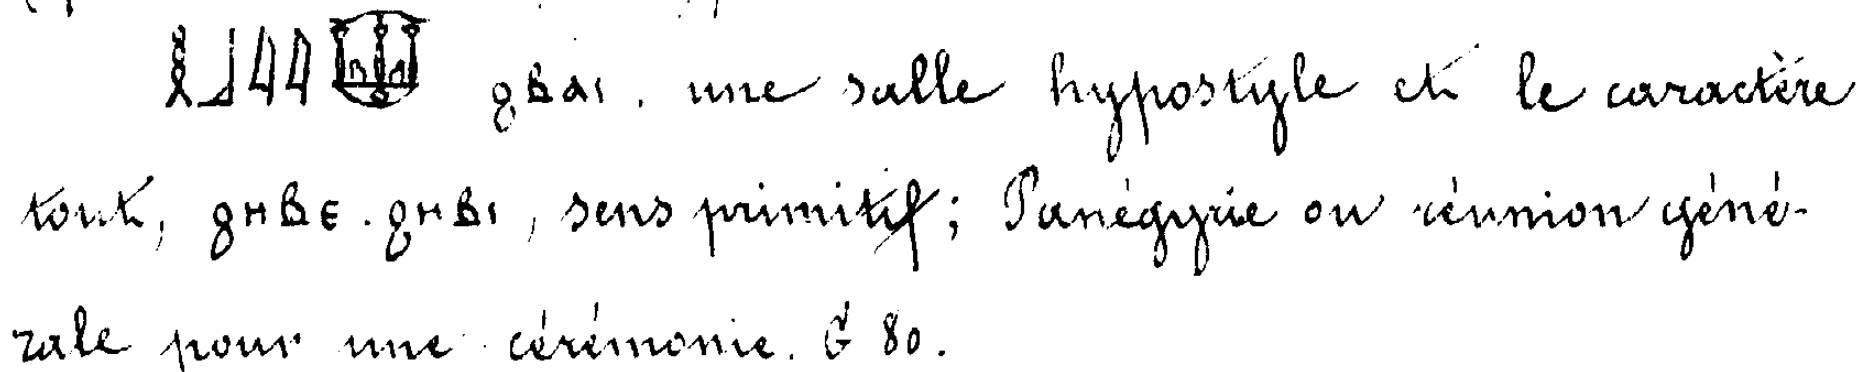 𓎛𓃀𓇋𓇋𓎱 ϩⲃⲁⲓ. une salle hypostyle et le caractère
tout, ϩⲏⲃⲉ. ϩⲏⲃⲓ, sens primitif; Panégyrie ou réunion géné-
rale pour une cérémonie. G 80.